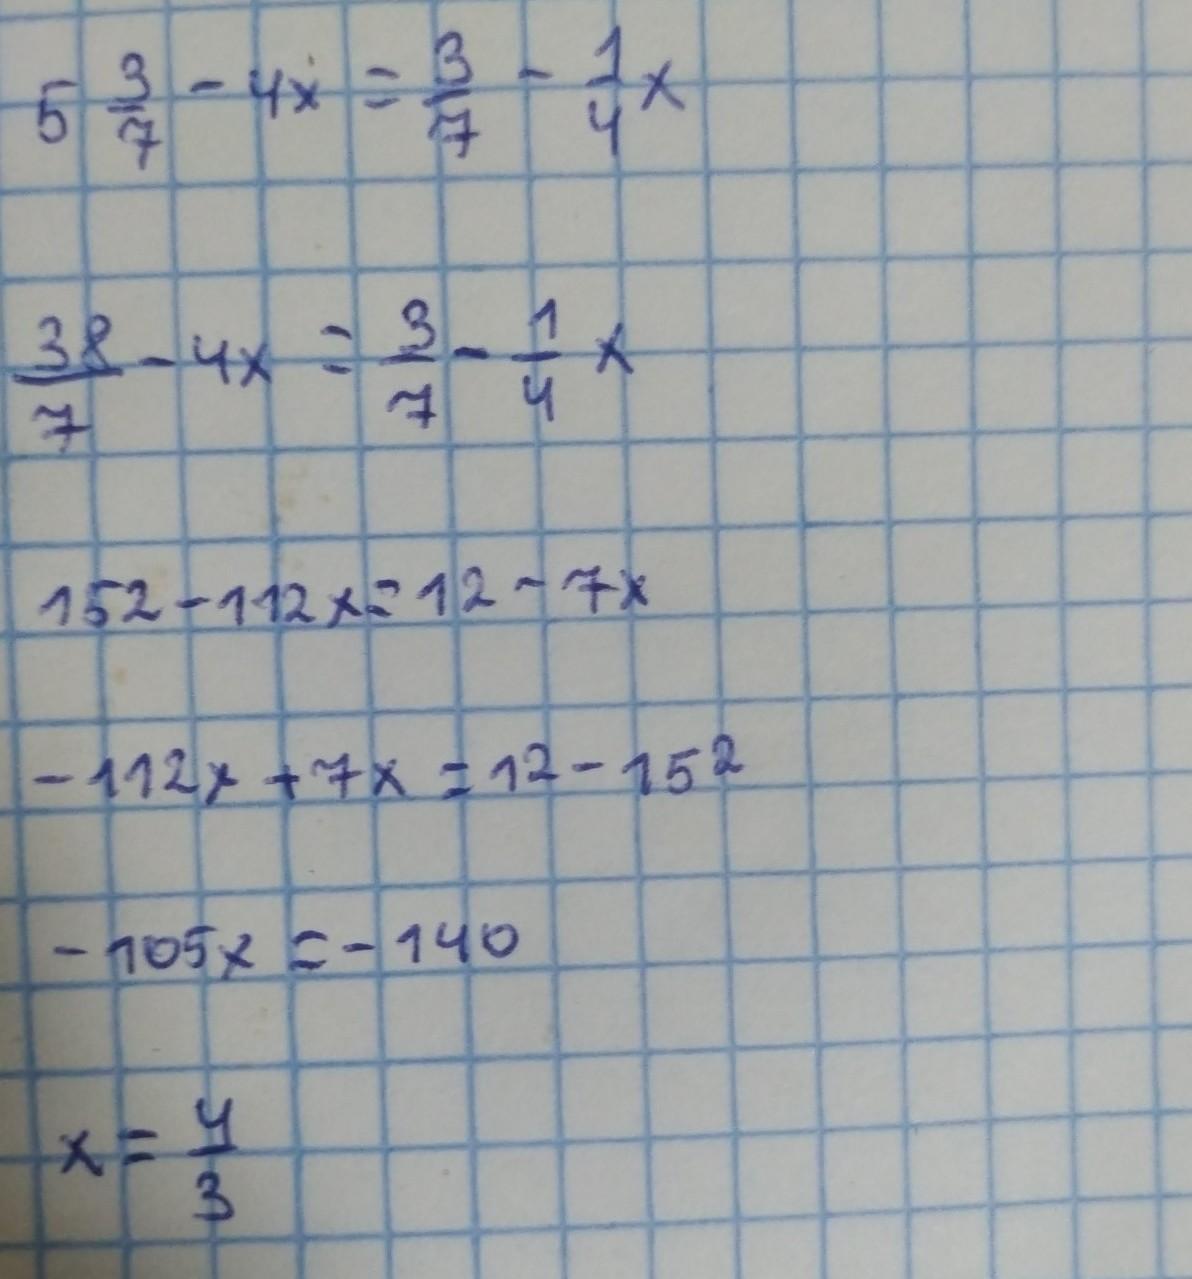 5 3/7 - 4x = 3/7 - 1/4 x
38/7 - 4x = 3/7 - 1/4 x
152 - 112x = 12 - 7x
-112x + 7x = 12 - 152
-105x = -140
x = 4/3